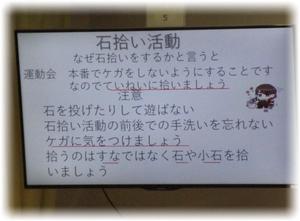 5
石拾い活動
なぜ石拾いをするかと言うと
運動会 本番でケガをしないようにすることです
なのでていねいに拾いましょう
注意
石を投げたりして遊ばない
石拾い活動の前後での手洗いを忘れない
ケガに気をつけましょう
拾うのはすなではなく石や小石を拾
いましょう